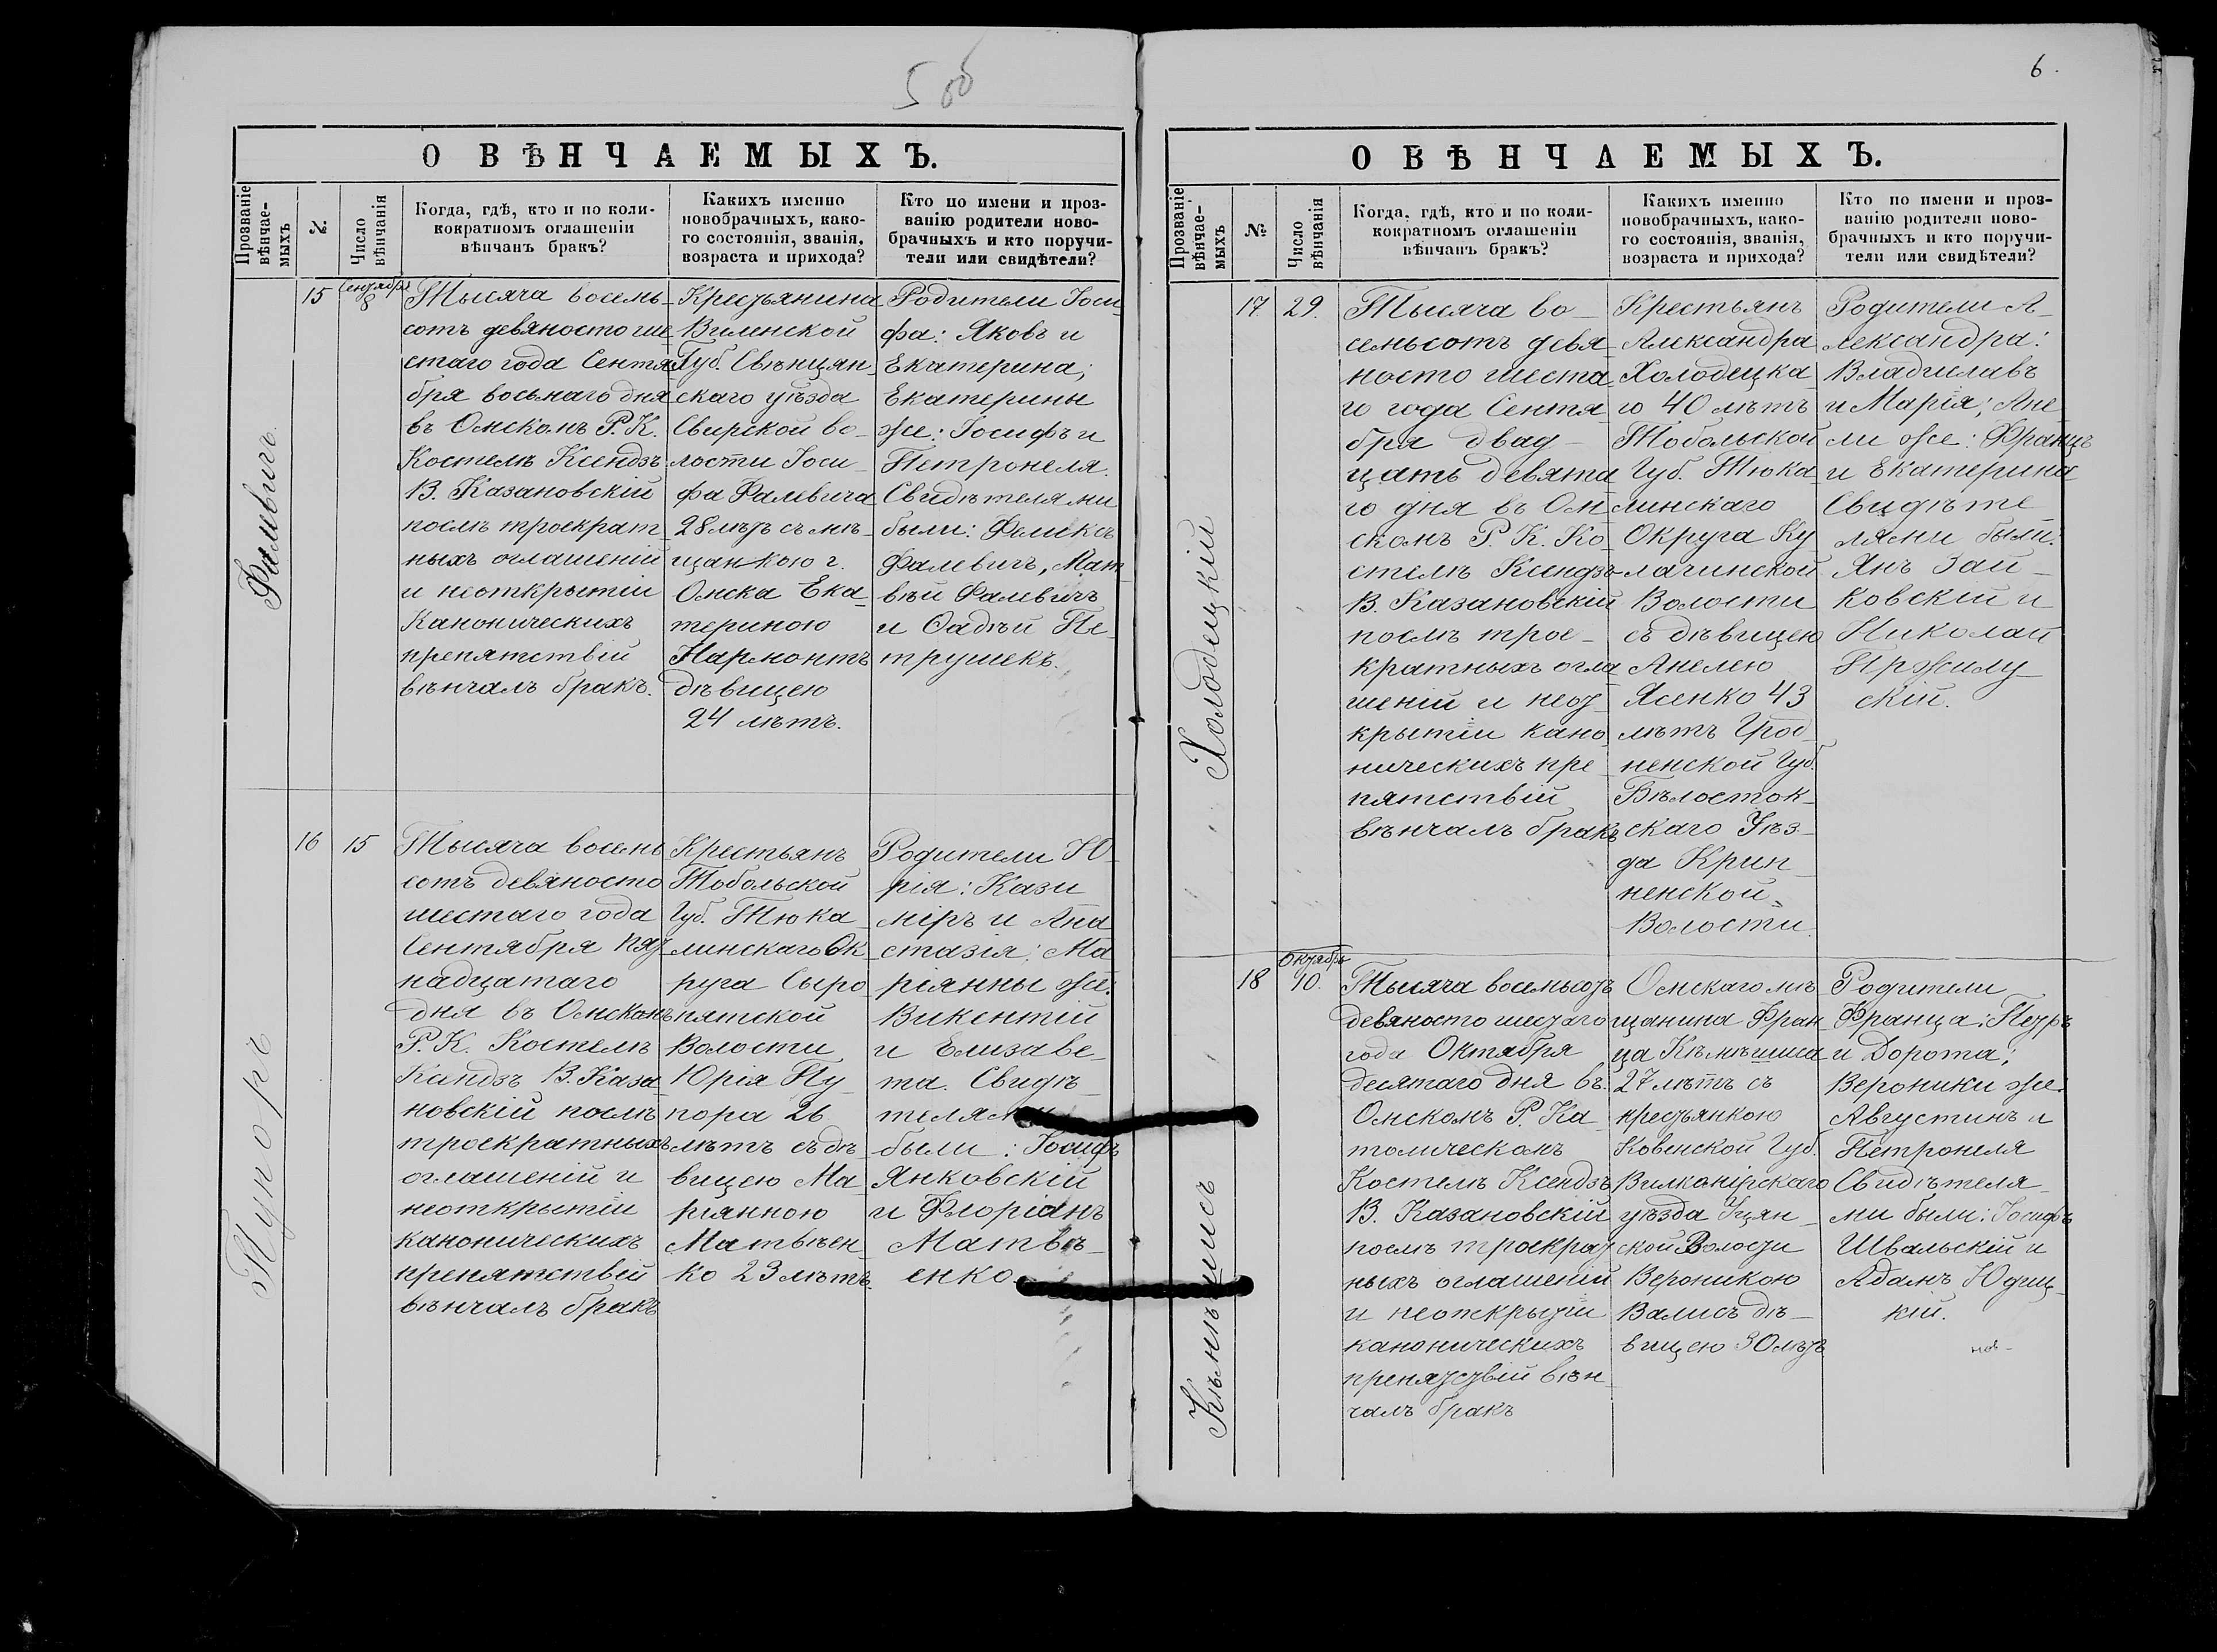 5 об
О ВѢНЧАЕМЫХЪ.
Прозваніе вѣнчае-
мыхъ
№
Число
вѣнчанія
Когда, гдѣ, кто и по коли-
кократномъ оглашеніи
вѣнчанъ бракъ?
Какихъ именно
новобрачныхъ, како-
го состоянія, званія,
возраста и прихода?
Кто по имени и проз-
ванію родители ново-
брачныхъ и кто поручи-
тели или свидѣтели?
Фалевичъ
15
Сентября
8
Тысяча восемь-
сотъ девяносто ше
стаго года Сентя
бря восьмаго дня
въ Омскомъ Р. К.
Костелѣ Ксендзъ
В. Казановскій
послѣ троекрат_
ныхъ оглашеній
и неоткрытіи
Каноническихъ
препятствій
вѣнчалъ бракъ.
Крестьянина
Виленской
Губ. Свѣнцян_
скаго уѣзда
Свирской во-
лости Іоси_
фа Фалевича
28 лѣтъ съ мѣ_
щанкою г.
Омска Ека_
териною
Нармонтъ
дѣвицею
24 лѣтъ.
Родители Іоси_
фа: Яковъ и
Екатерина;
Екатерины
же: Іосифъ и
Петронеля.
Свидѣтелями
были: Феликсъ
Фалевичъ, Мат
вѣй Фалевичъ
и Фадѣй Пе_
трушекъ.
Пупоръ
16
15
Тысяча восемь
сотъ девяносто
шестаго года
Сентября пят_
надцатаго
дня въ Омскомъ
Р. К. Костелѣ
Ксендзъ В. Каза
новскій послѣ
троекратныхъ
оглашеній и
неоткрытіи
каноническихъ
препятствій
вѣнчалъ бракъ
Крестьянъ
Тобольской
Губ. Тюка_
линскаго Ок_
руга Сыро_
пятской
Волости
Юрія Пу_
пора 26
лѣтъ съ дѣ_
вицею Ма_
ріянною
Матвѣен_
ко 23 лѣтъ.
Родители Ю_
рія: Кази
міръ и Ана
стазія; Ма
ріянны же:
Викентій
и Елизаве_
та. Свидѣ_
телями
были: Іосифъ
Янковскій
и Флоріанъ
Матвѣ_
енко
6.
О ВѢНЧАЕМЫХЪ.
Прозваніе
вѣнчае-
мыхъ
№
Число
вѣнчанія
Когда, гдѣ, кто и по коли-
кократномъ оглашеніи
вѣнчанъ бракъ?
Какихъ именно
новобрачныхъ, како-
го состоянія, званія,
возраста и прихода?
Кто по имени и проз-
ванію родители ново-
брачныхъ и кто поручи-
тели или свидѣтели?
Холодецкій
17
29.
Тысяча во_
семьсотъ девя_
носто шеста_
го года Сентя_
бря двад_
цать девята
го дня въ Ом_
скомъ Р. К. Ко_
стелѣ Ксендзъ
В. Казановскій
послѣ трое_
кратныхъ огла
шеній и неот_
крытіи кано_
ническихъ пре_
пятствій
вѣнчалъ бракъ
Крестьянъ
Александра
Холодецка
го 40 лѣтъ
Тобольской
Губ. Тюка
линскаго
Округа Ку
лачинской
Волости
съ дѣвицею
Анелею
Ясенко 43
лѣтъ Грод
ненской Губ.
Бѣлосток_
скаго Уѣз_
да Крин_
ненской
Волости.
Родители А_
лександра:
Владиславъ
и Марія; Ане
ли же: Францъ
и Екатерина
Свидѣте_
лями были:
Янъ Зай_
ковскій и
Николай
Пржилу_
скій.
Кѣмѣшисъ
18
Октябрь
10.
Тысяча восемьсотъ
девяносто шестаго
года Октября
десятаго дня въ
Омскомъ Р. Ка_
толическомъ
Костелѣ Ксендзъ
В. Казановскій
послѣ троекрат_
ныхъ оглашеній
и неоткрытіи
каноническихъ
препятствій вѣн_
чалъ бракъ
Омскаго мѣ_
щанина Фран_
ца Кѣмѣшиса
27 лѣтъ съ
крестьянкою
Ковенской Губ.
Вилкомірскаго
уѣзда Уцян_
ской Волости
Вероникою
Валисъ дѣ_
вицею 30 лѣтъ
Родители
Франца: Петръ
и Дорота;
Вероники же:
Августинъ и
Петронеля
Свидѣтеля_
ми были: Іосифъ
Швальскій и
Адамъ Юдиц_
кій.